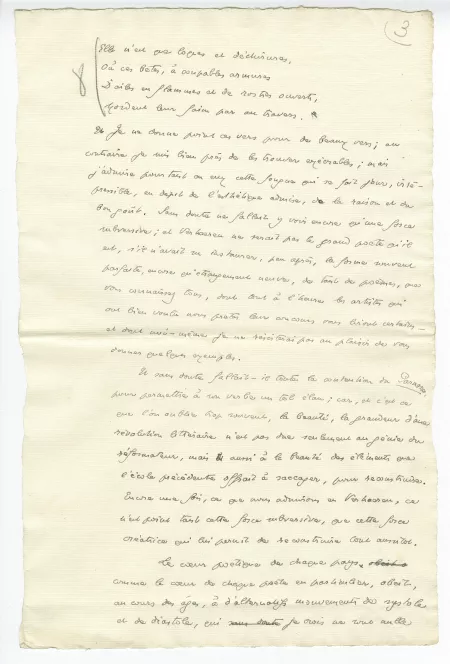 3
Elle n'est que loques et déchirures,
Où ces bêtes, à coupables armures
D'ailes en flammes et de rostres ouverts,
Mordent leur faim par au travers.
Je ne donne point ces vers pour de beaux vers ; au
contraire je suis bien près de les trouver exécrables ; mais
j'admire pourtant en eux cette fougue qui se fait jour, irré-
pressible, en dépit de l'esthétique admise, de la raison et du
bon goût. Sans doute ne fallait-il y voir encore qu'une force
subversive ; et Verhaeren ne serait pas le grand poète qu'il
est, s'il n'avait su instaurer, peu après, la forme souvent
parfaite, encore qu'étrangement neuve, de tant de poèmes, que
vous connaissez tous, dont tout à l'heure les artistes qui
ont bien voulu nous prêter leur concours vous liront certains —
et dont moi-même je ne résisterai pas au plaisir de vous
donner quelques exemples.
Et sans doute fallait-il toute la contention du Parnasse,
pour permettre à son verbe un tel élan ; car, et c'est ce
que l'on oublie trop souvent, la beauté, la grandeur d'une
révolution littéraire n'est pas due seulement au génie du
réformateur, mais aussi à la beauté des éléments que
l'école précédente offrait à saccager, pour reconstruire.
Encore une fois, ce que nous admirons en Verhaeren, ce
n'est point tant cette force subversive, que cette force
créatrice qui lui permit de reconstruire tout aussitôt.
Le cœur poétique de chaque pays,
comme le cœur de chaque poète en particulier, obéit,
au cours des âges, à d'alternatifs mouvements de systole
et de diastole, qui je crois ne sont nulle